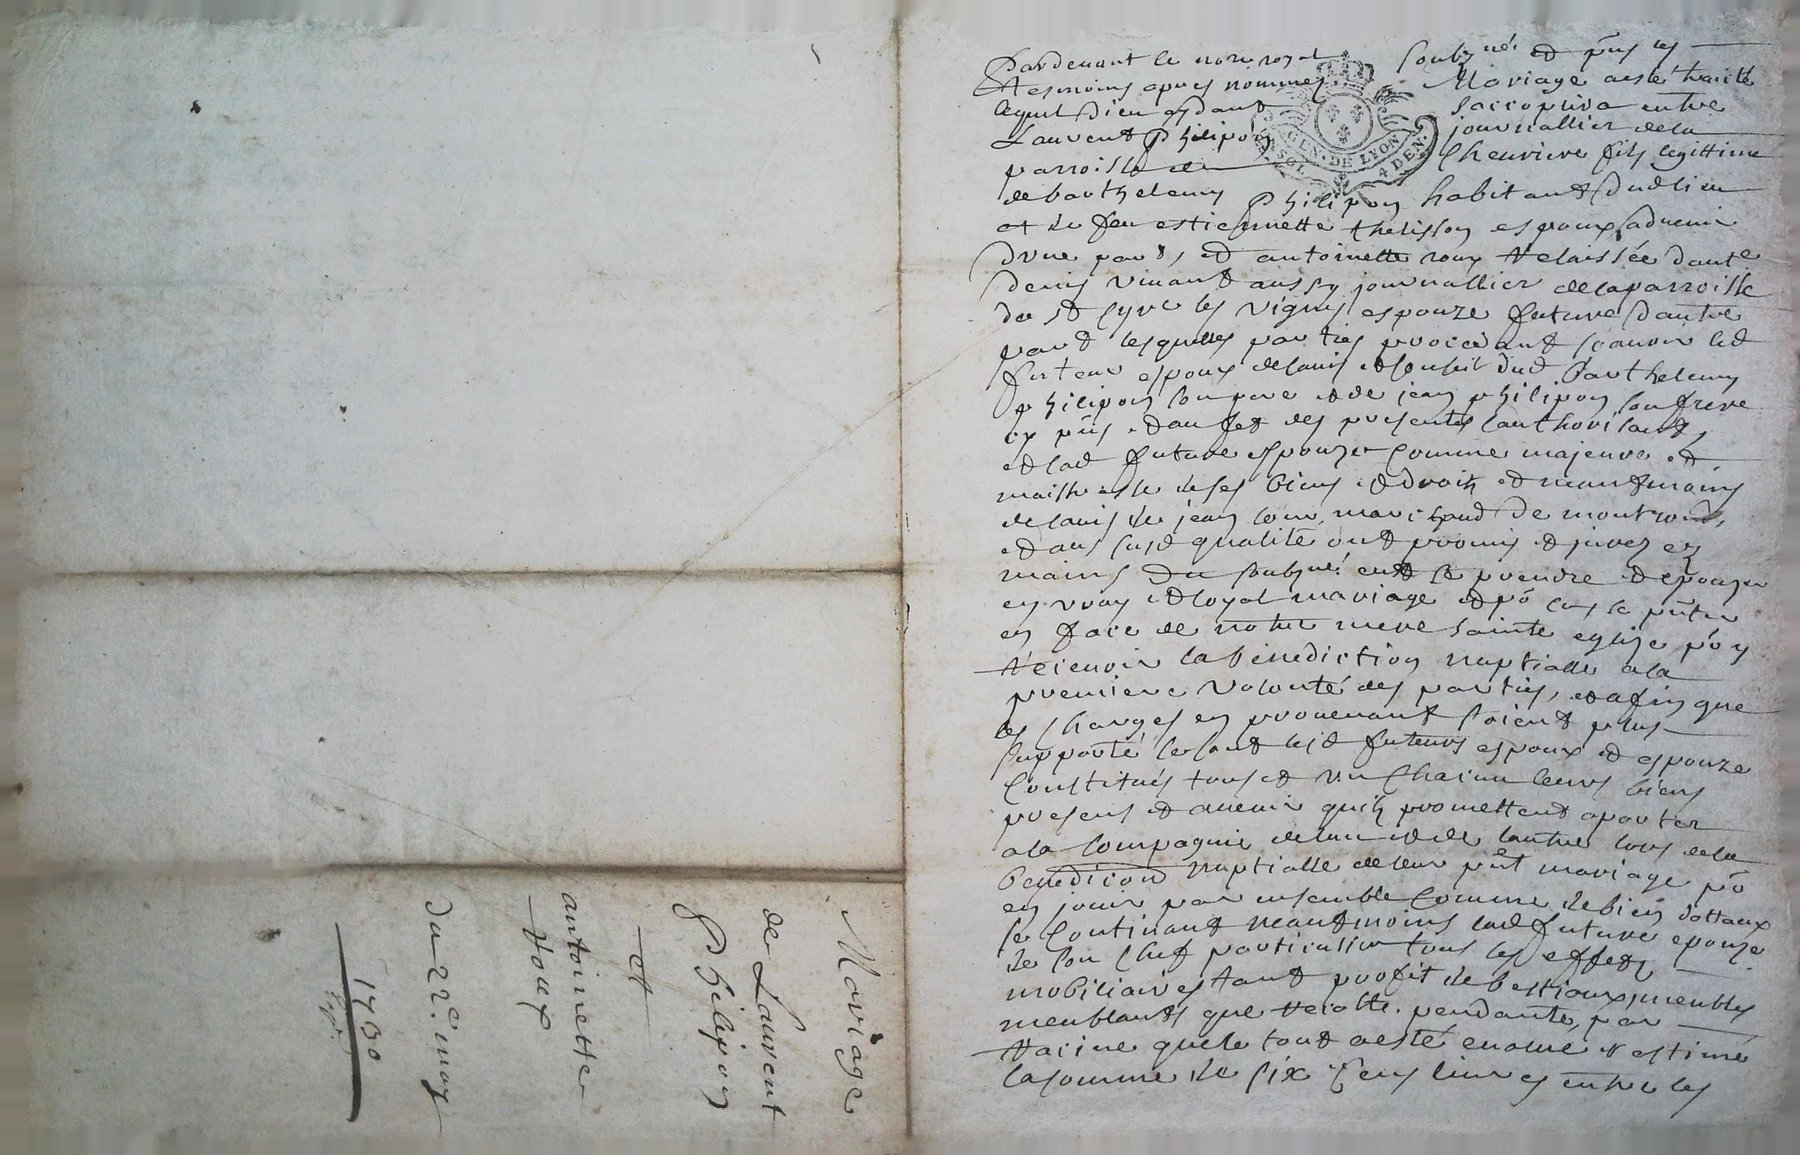 Mariage
de Laurent
Philipon
et
antoinette
Roux
du 22e. may
1730
Pardevant le nore royal soubz.né. et pñs les
tesmoins apres nommes Mariage a esté traicté
lequel Dieu aydant saccoplira entre
Laurent Philipon journallier de la
parroisse de Chevriere fils legittime
de barthelemy Philipon habitant dud lieu
et de feu estiennette thelisson espoux advenir
dune part, et antoinette roux relaissée dante
denis vivant aussy journallier de la parroisse
de st Cyre les vignes espouze future dautre
part lesquelles parties procedant scavoir led
futeur espoux de lavis et conseil dud Barthelemy
philipon son pere et de jean philipon son frere
cy pñs et au fet des presentes lauthorisant,
et lad future espouze Comme majeure et
maistresse de ses biens et droits et neantmoins
de lavis de jean marchand de montrond,
et ans susd qualité ont promis et jurez es
mains du soubzné. not se prendre et epouzer
en vray et loyal mariage et po se pñter
en face de notre mere sainte eglize po y
recevoir la benediction nuptialle a la
premiere volonté des parties, et afin que
les charges en provenant soient plus
supporté se sont lesd futeurs espoux et espouze
Constitués tous et un Chacun leurs biens
presens et avenir quils promettent aporter
a la compagnie de lun et de lautre lors de la
benediction nuptialle de leur pñt mariage po
en jouir par ensemble Comme de bien dottaux
se Contituant neantmoins lad future epouze
de son Chef particulier tous les effets
mobiliaires tant profit de bestiaux, meubles
meublants que recolte pendante, par
racine que le tout a esté evalué & estimé
la somme de six Cens livres entre les
GLN. DE LYON
4 DEN.